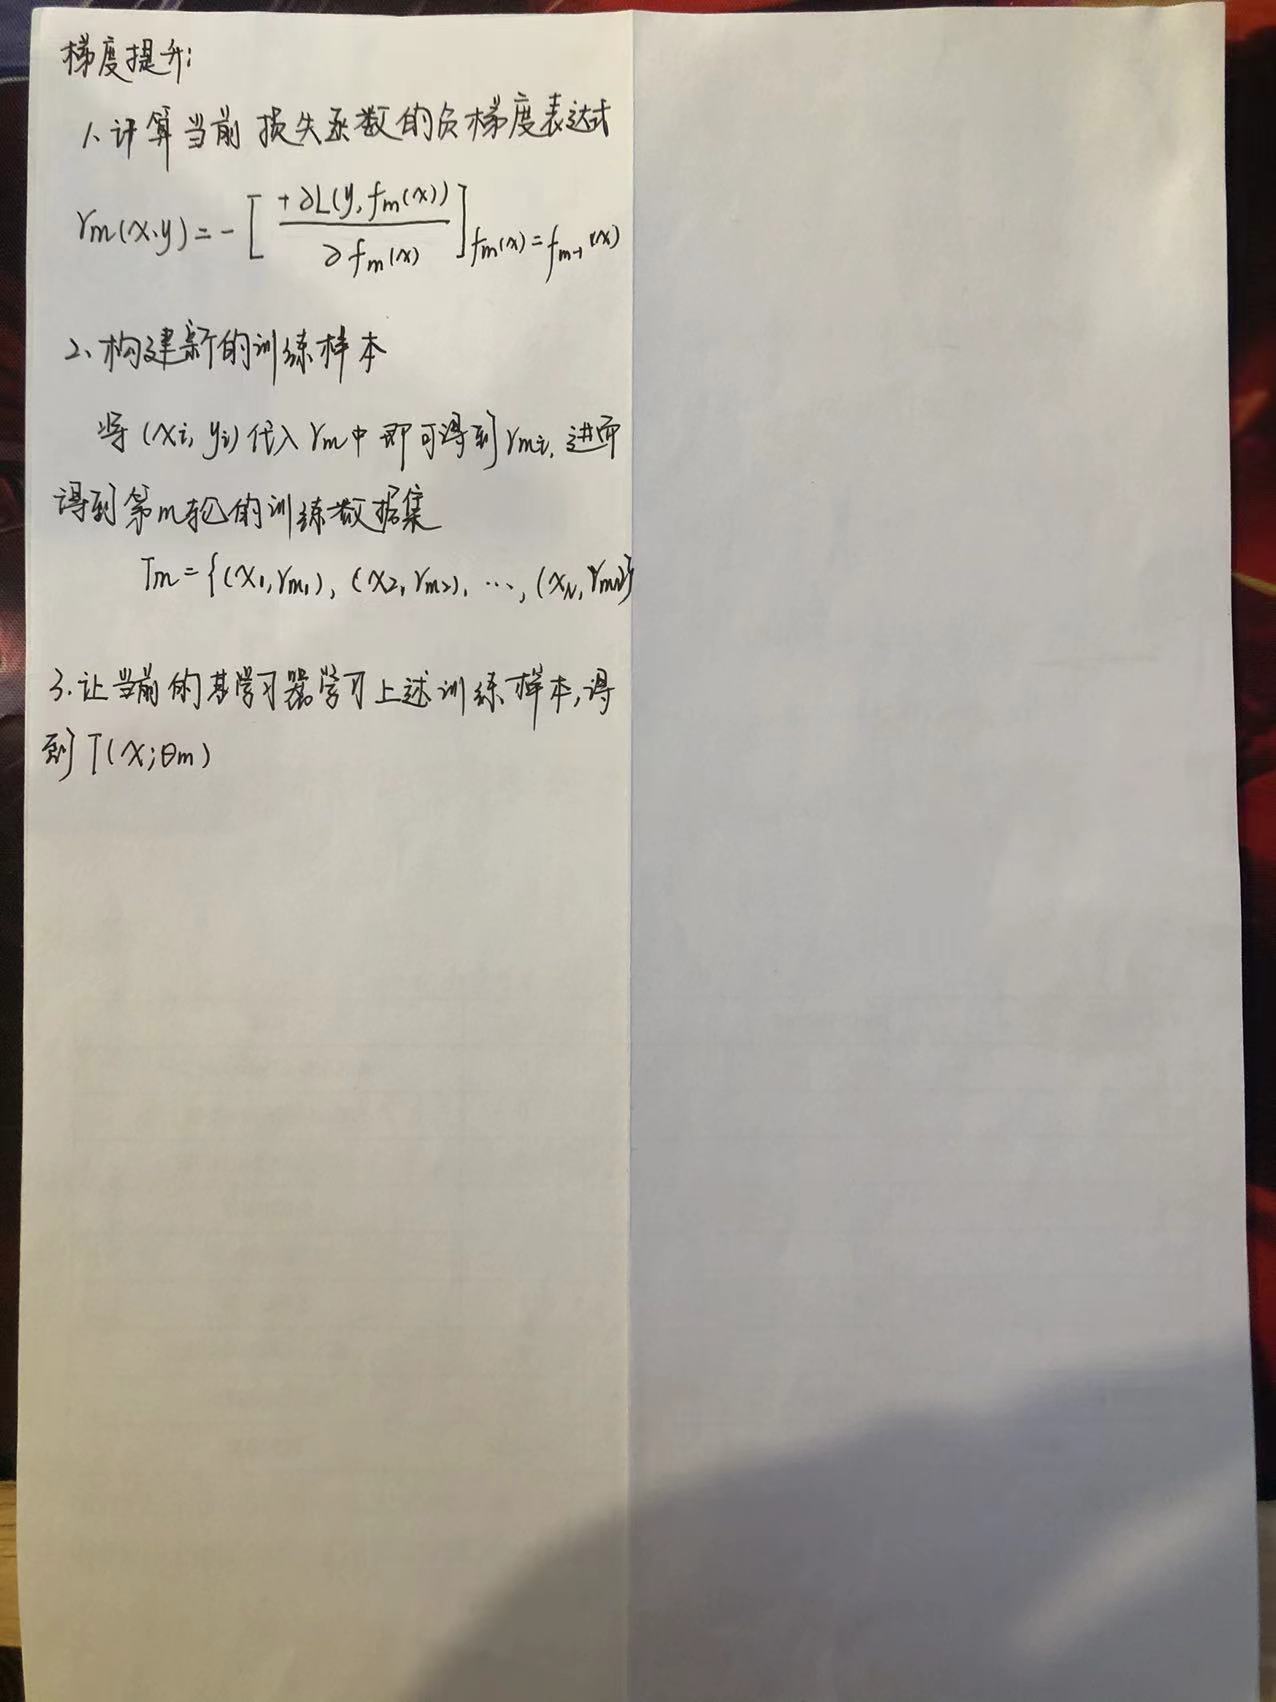 梯度提升:
1、计算当前损失系数的负梯度表达式
rm(x,y)=-[+∂L(y,fm(x))/∂fm(x)]fm(x)=fm-1(x)
2、构建新的训练样本
将(xi,yi)代入rm中即可得到rmi,进而
得到第m轮的训练数据集
Tm={(x1,rm1),(x2,rm2),…,(xN,rmN)}
3.让当前的基学习器学习上述训练样本,得
到T(x;θm)